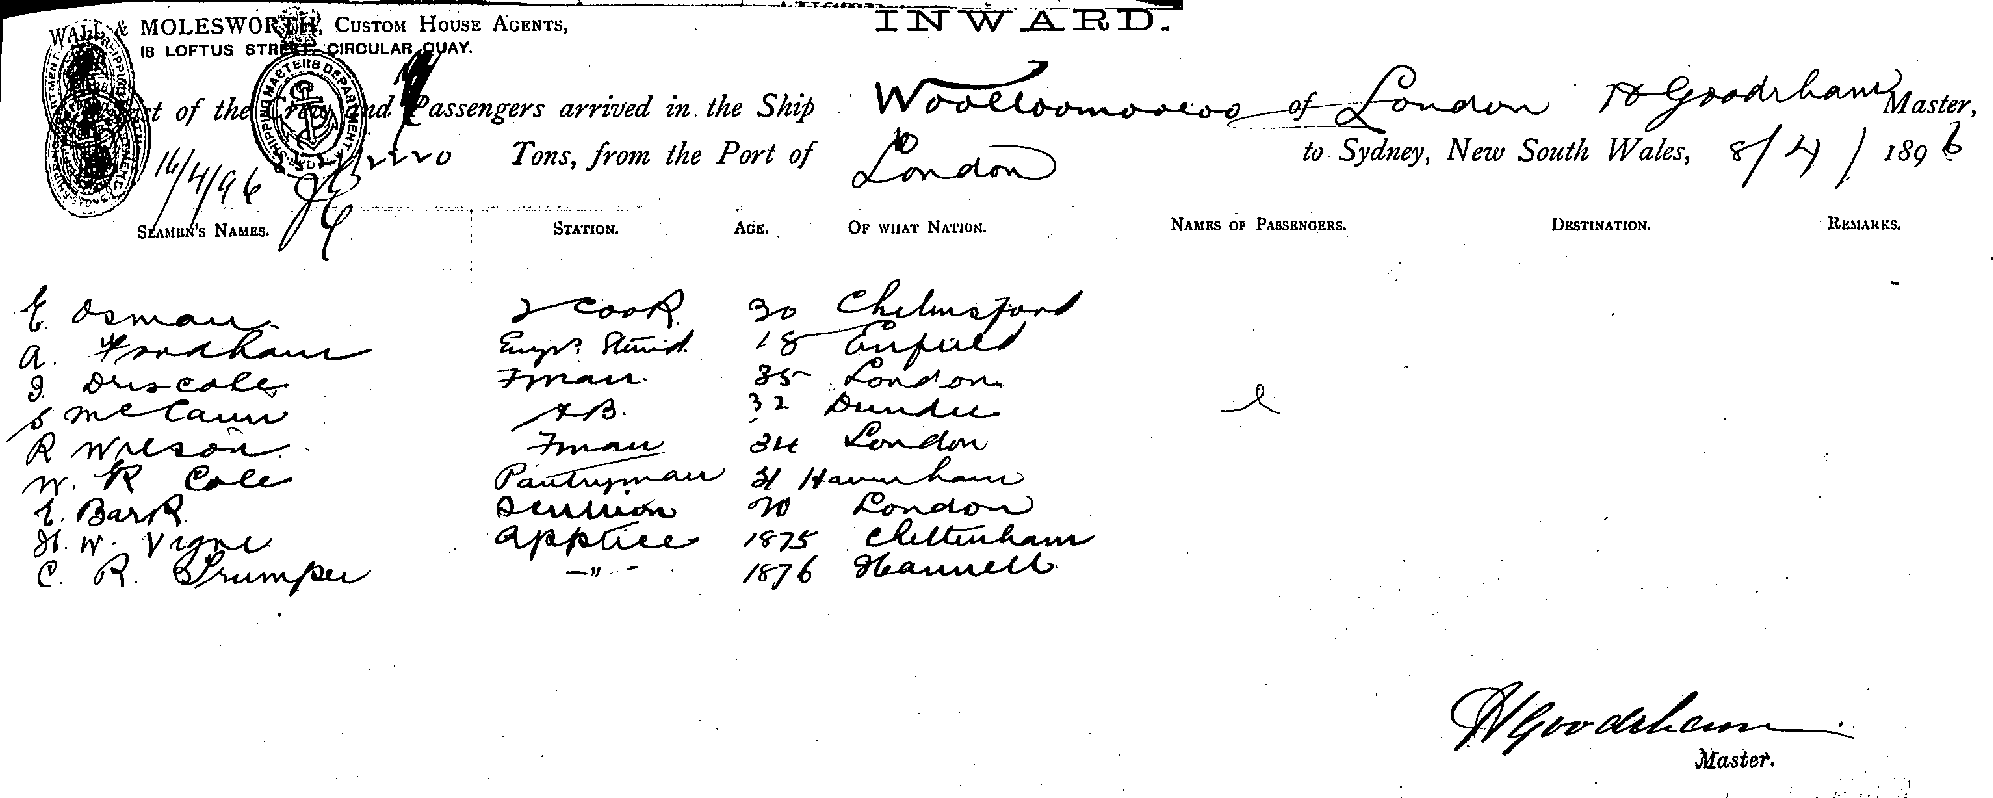 INWARD.
WALL & MOLESWORTH, CUSTOM HOUSE AGENTS,
18 LOFTUS STREET, CIRCULAR QUAY.
List of the Crew and Passengers arrived in the Ship Woolloomooloo of London H Goodrham Master,
Tons, from the Port of London to Sydney, New South Wales, 8/4/1896
16/4/96
SEAMEN'S NAMES. STATION. AGE. OF WHAT NATION. NAMES OF PASSENGERS. DESTINATION. REMARKS.
E. Osman 2 Cook 30 Chelmsford
A. Fordham 18 Enfield
J. Driscole Fman 35 London
S McCann AB. 32 Dundee
R Wilson Fman 34 London
W. R Cole Pantryman 31 Haverham
E. Bark Scullion 20 London
H. W. Vigne Apptice 1875 Cheltenham
C. R. Trumper -"- 1876 Hanwell
H Goodrham
Master.